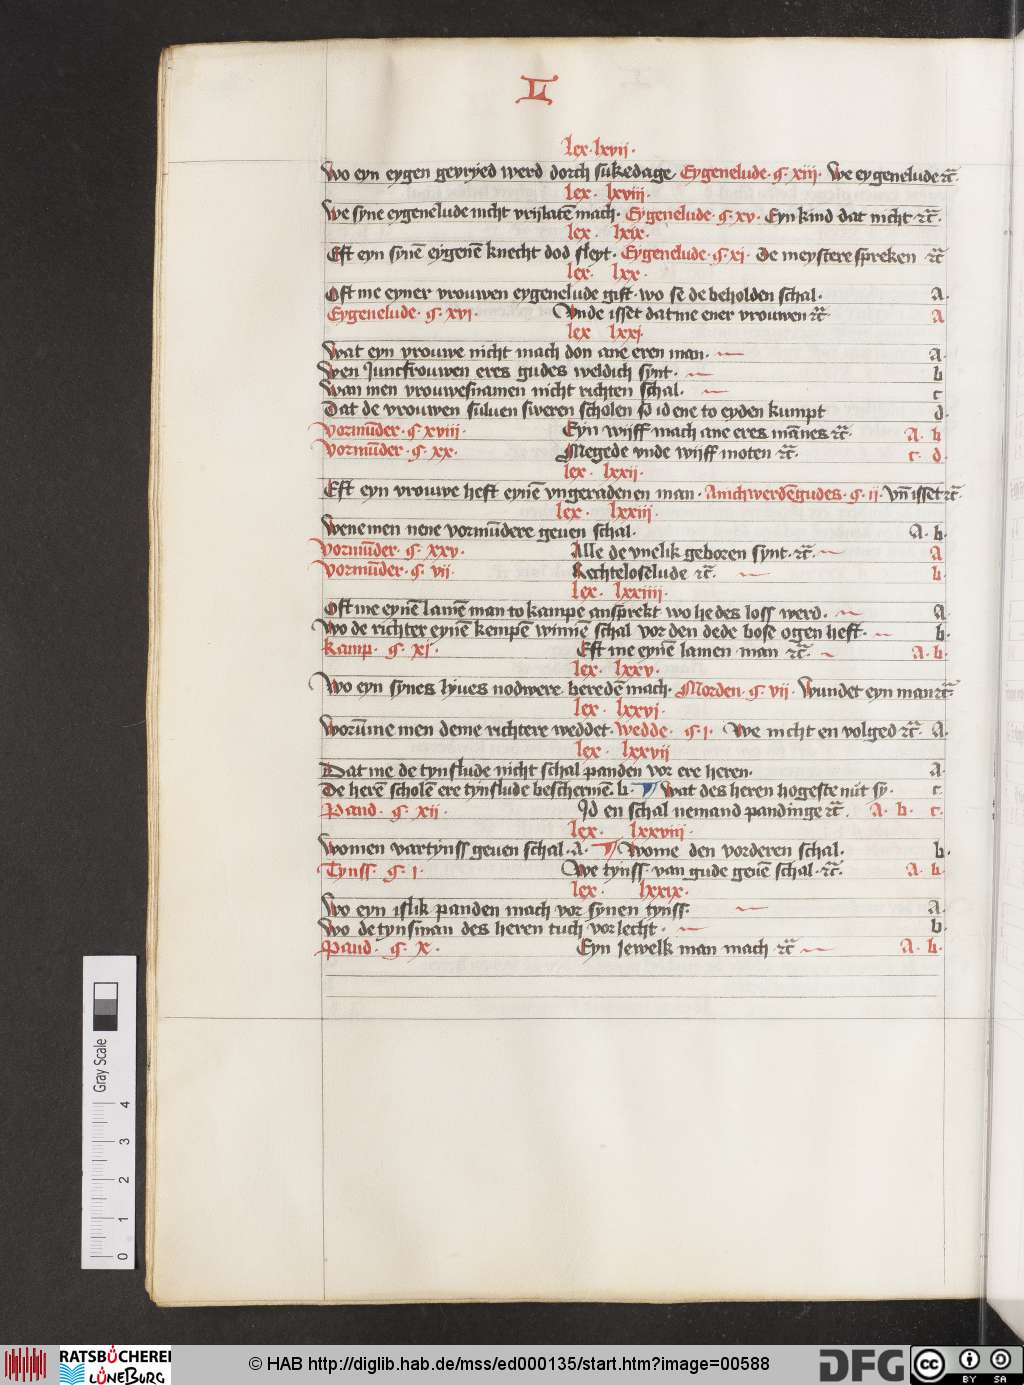 L
lex · lxvij ·
Wo eyn eygen gevryed werd dorch sukedage Eygenelude · §· xiii · We eygenelude ⁊c̃ ·
lex · lxviij ·
We syne eygenelude nicht vrijlatē mach · Eygenelude · §· xv · Eyn kind dat nicht ⁊c̃ ·
lex · lxix ·
Eft eyn synē eygenē knecht dod sleyt · Eygenelude · §· xi · De meystere spreken ⁊c̃
lex · lxx ·
Oft me eyner vrouwen eygenelude gift · wo se de beholden schal · a ·
Eygenelude · §· xvi · Vnde isset dat me ener vrouwen ⁊c̃ a
lex lxxj ·
Wat eyn vrouwe nicht mach don ane eren man · a ·
Wen Juncfrouwen eres gudes weldich synt · b
Wan men vrouwesnamen nicht richten schal · c
Dat de vrouwen suluen sweren scholen so id ene to eyden kumpt d ·
Vormūder · §· xviij · Eyn wijff mach ane eres mānes ⁊c̃ · a · b
Vormūder · §· xx · Megede vnde wijff moten ⁊c̃ · c · d ·
lex · lxxij ·
Eft eyn vrouwe heft eynē vngeradenen man · Anichwerdēgudes · §· ij · Vn̄ isset ⁊c̃ ·
lex · lxxiij ·
Wenemen nene vormundere geuen schal · a · b ·
Vormūder · §· xxv · Alle de vnelik geboren synt · ⁊c̃ a
Vormūder · §· vij · Rechteloselude ⁊c̃ · b ·
lex · lxxiiij ·
Oft me eynē lamē man to kampe ansprekt wo he des loss werd · a ·
Wo de richter eynē kempē winnē schal vor den dede bose ogen heft · b ·
Kamp · §· xi · Eft me eynē lamen man ⁊c̃ · a · b ·
lex · lxxv ·
Wo eyn synes lyues nodwere beredē mach · Morden · §· vij · Wundet eyn man ⁊c̃ ·
lex · lxxvj ·
Worūme men deme richtere weddet · Wedde · §· j · We nicht en volged ⁊c̃ · a ·
lex · lxxvij
Dat me de tynslude nicht schal panden vor ere heren · a ·
De herē scholē ere tynslude beschermē · b · ¶ Wat des heren hogeste nut sy · c ·
Pand · §· xij · Id en schal nemand pandinge ⁊c̃ · a · b · c ·
lex · lxxviij ·
Women vartynss geuen schal · a · ¶ Wome den vorderen schal · b ·
Tynss · §· j · We tynss van gude geuē schal · ⁊c̃ · a · b ·
lex · lxxix ·
Wo eyn islik panden mach vor synen tynss · a ·
Wo de tynsman des heren tuch vorlecht · b ·
Pand · §· x · Eyn Jewelk man mach ⁊c̃ a · b ·
Gray Scale
0 1 2 3 4
RATSBÜCHEREI LÜNEBURG
© HAB http://diglib.hab.de/mss/ed000135/start.htm?image=00588
DFG
cc BY SA